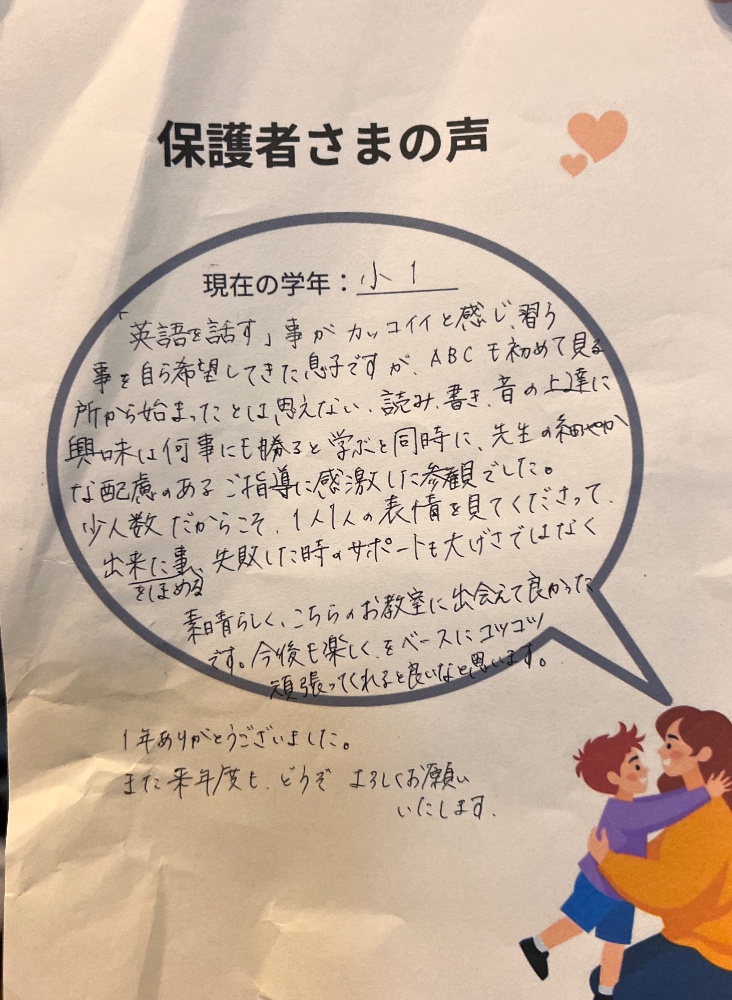 保護者さまの声
現在の学年：小1
「英語を話す」事がカッコイイと感じ、習う
事を自ら希望してきた息子ですが、ABCも初めて見る
所から始まったとは思えない、読み、書き、音の上達に
興味は何事にも勝ると学ぶと同時に、先生の細やか
な配慮のあるご指導に感激した参観でした。
少人数だからこそ、1人1人の表情を見てくださって、
出来た事、失敗した時のサポートも大げさではなく
をほめる
素晴らしく、こちらのお教室に出会えて良かった
です。今後も楽しく、をベースにコツコツ
頑張ってくれると良いなと思います。
1年ありがとうございました。
また来年度も、どうぞよろしくお願い
いたします。